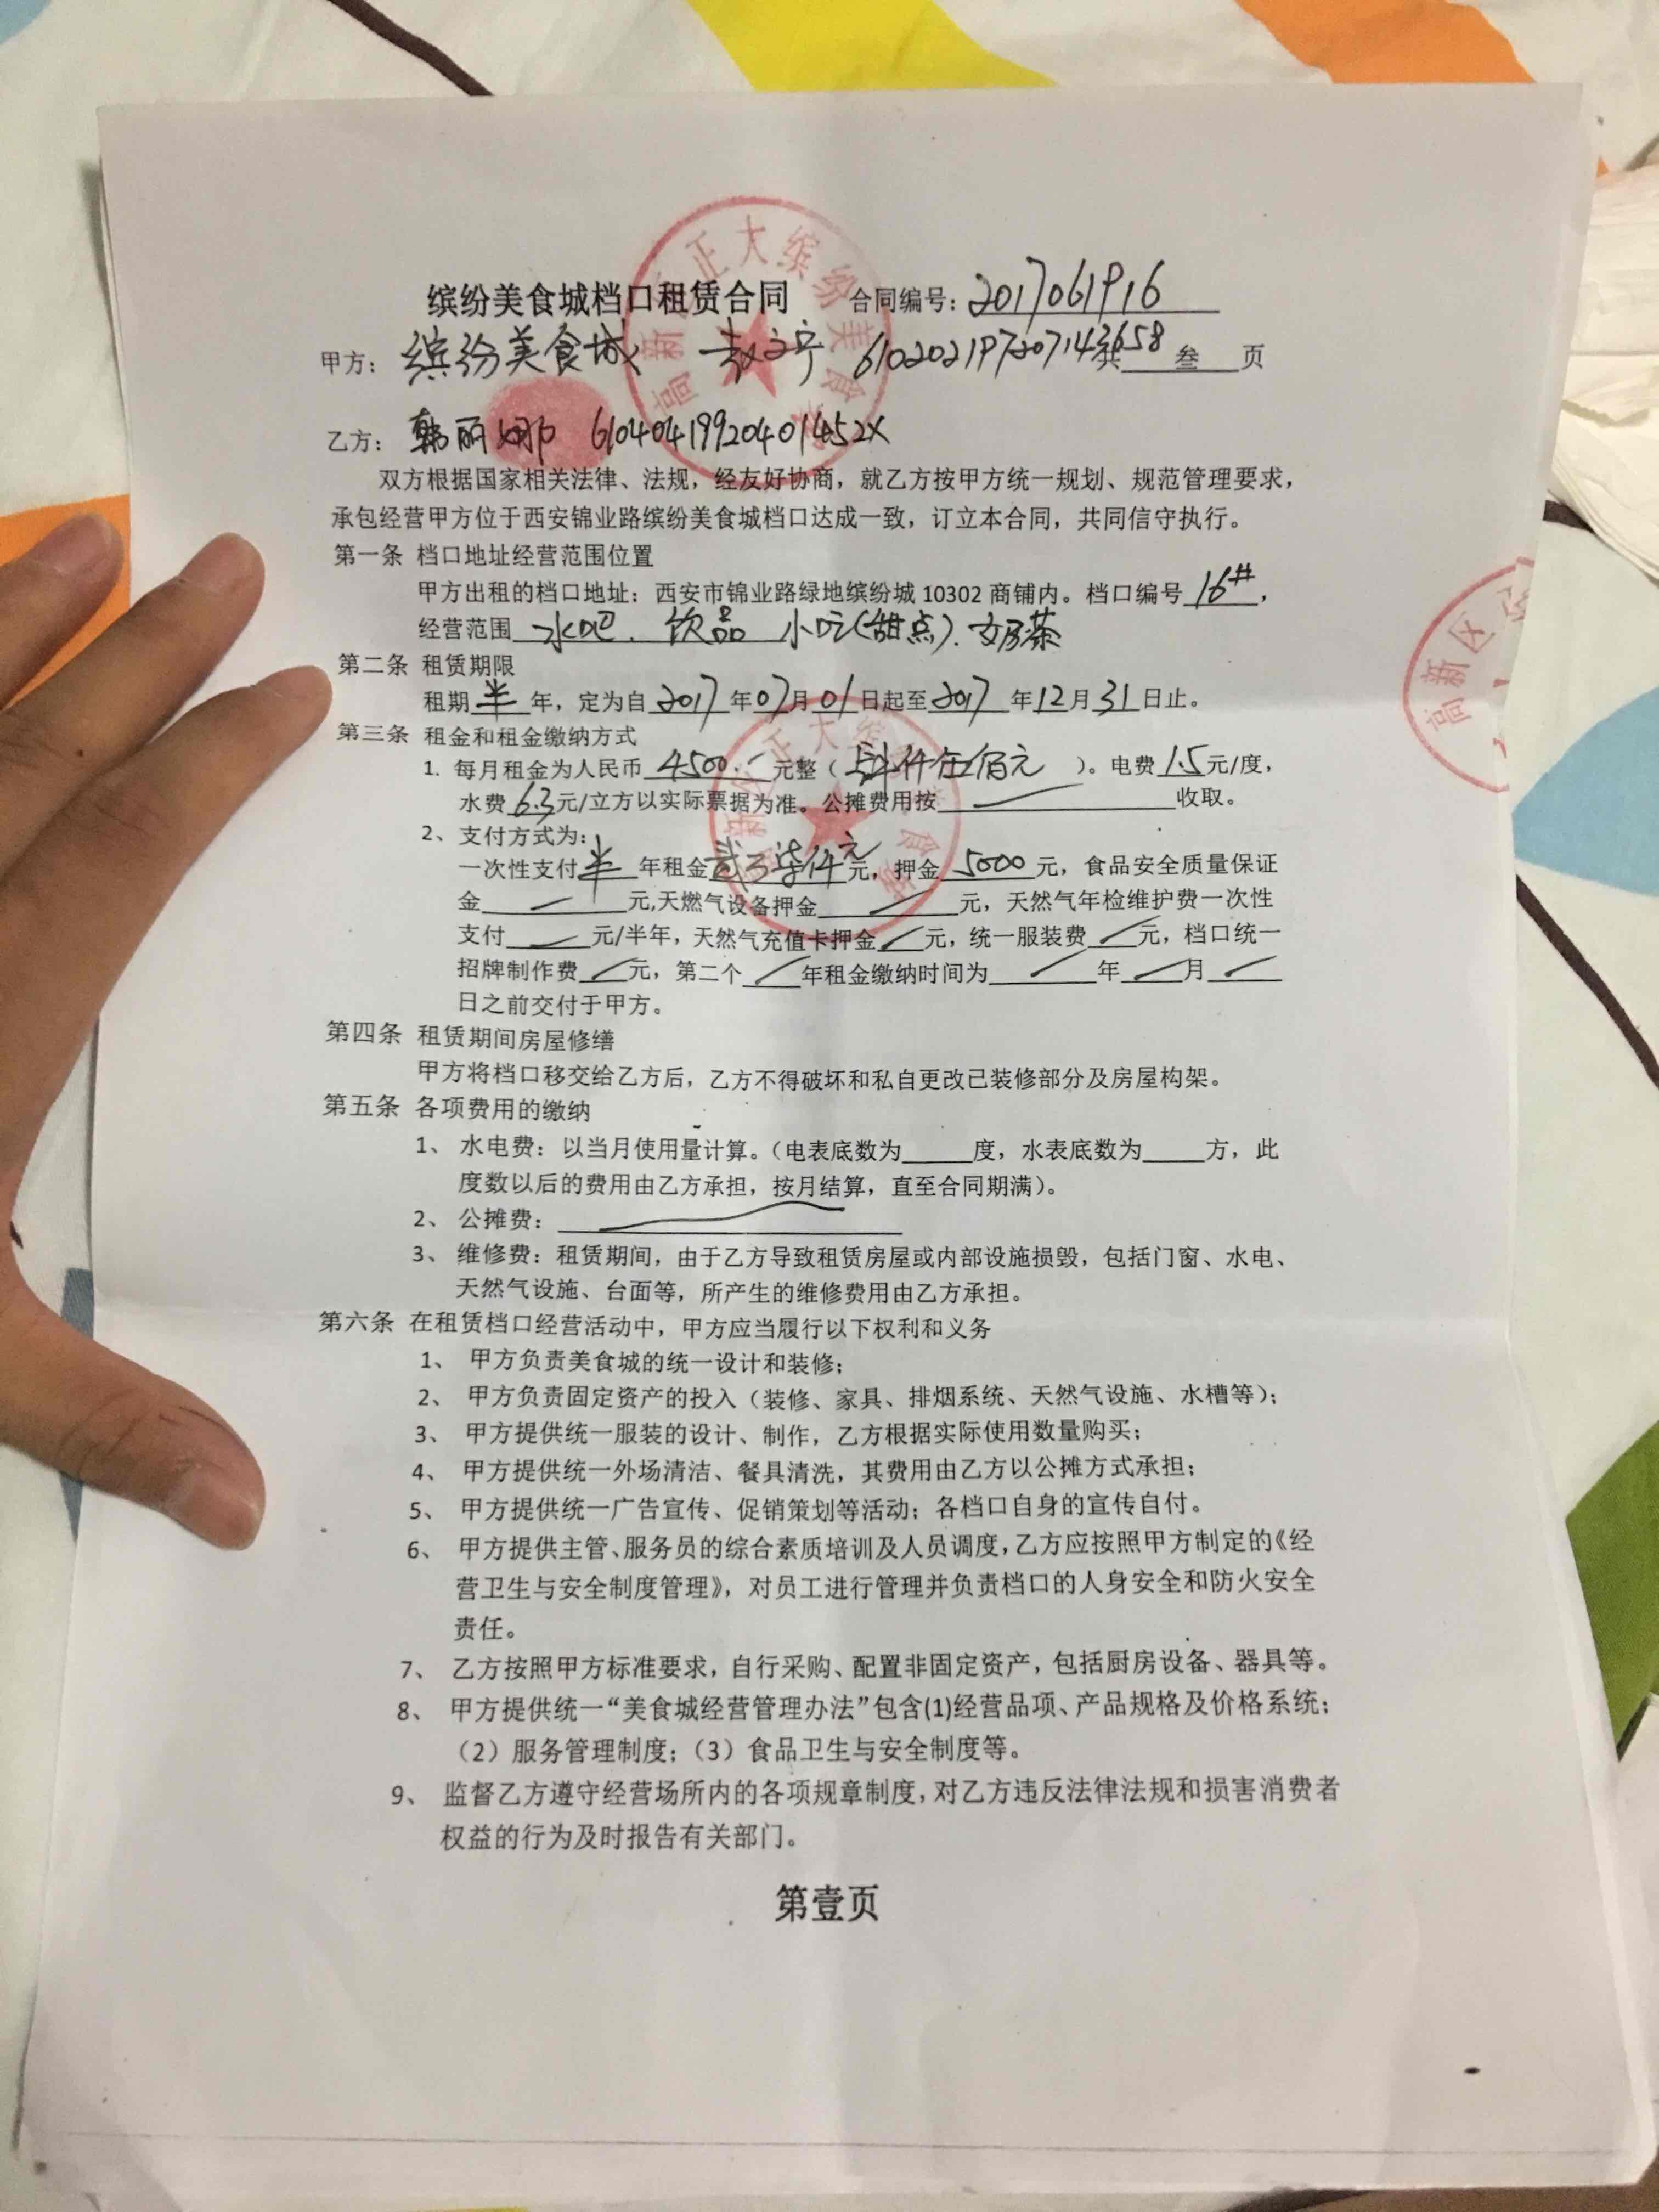 缤纷美食城档口租赁合同 合同编号：2017061916
甲方：缤纷美食城 610202197207143658 共 叁 页
乙方：韩丽娜 61040419920401452X
双方根据国家相关法律、法规，经友好协商，就乙方按甲方统一规划、规范管理要求，
承包经营甲方位于西安锦业路缤纷美食城档口达成一致，订立本合同，共同信守执行。
第一条 档口地址经营范围位置
甲方出租的档口地址：西安市锦业路绿地缤纷城 10302 商铺内。档口编号 16# ，
经营范围 水吧. 饮品 小吃(甜点). 奶茶
第二条 租赁期限
租期 半 年，定为自 2017 年 07 月 01 日起至 2017 年 12 月 31 日止。
第三条 租金和租金缴纳方式
1. 每月租金为人民币 4500.- 元整（ 肆仟伍佰元 ）。电费 1.5 元/度，
水费 6.3 元/立方以实际票据为准。公摊费用按 收取。
2、支付方式为：
一次性支付 半 年租金 贰万柒仟元 元，押金 5000 元，食品安全质量保证
金 元,天燃气设备押金 元，天然气年检维护费一次性
支付 元/半年，天然气充值卡押金 元，统一服装费 元，档口统一
招牌制作费 元，第二个 年租金缴纳时间为 年 月
日之前交付于甲方。
第四条 租赁期间房屋修缮
甲方将档口移交给乙方后，乙方不得破坏和私自更改已装修部分及房屋构架。
第五条 各项费用的缴纳
1、 水电费：以当月使用量计算。（电表底数为 度，水表底数为 方，此
度数以后的费用由乙方承担，按月结算，直至合同期满）。
2、 公摊费：
3、 维修费：租赁期间，由于乙方导致租赁房屋或内部设施损毁，包括门窗、水电、
天然气设施、台面等，所产生的维修费用由乙方承担。
第六条 在租赁档口经营活动中，甲方应当履行以下权利和义务
1、 甲方负责美食城的统一设计和装修；
2、 甲方负责固定资产的投入（装修、家具、排烟系统、天然气设施、水槽等）；
3、 甲方提供统一服装的设计、制作，乙方根据实际使用数量购买；
4、 甲方提供统一外场清洁、餐具清洗，其费用由乙方以公摊方式承担；
5、 甲方提供统一广告宣传、促销策划等活动；各档口自身的宣传自付。
6、 甲方提供主管、服务员的综合素质培训及人员调度，乙方应按照甲方制定的《经
营卫生与安全制度管理》，对员工进行管理并负责档口的人身安全和防火安全
责任。
7、 乙方按照甲方标准要求，自行采购、配置非固定资产，包括厨房设备、器具等。
8、 甲方提供统一“美食城经营管理办法”包含(1)经营品项、产品规格及价格系统；
（2）服务管理制度；（3）食品卫生与安全制度等。
9、 监督乙方遵守经营场所内的各项规章制度，对乙方违反法律法规和损害消费者
权益的行为及时报告有关部门。
第壹页
高新区